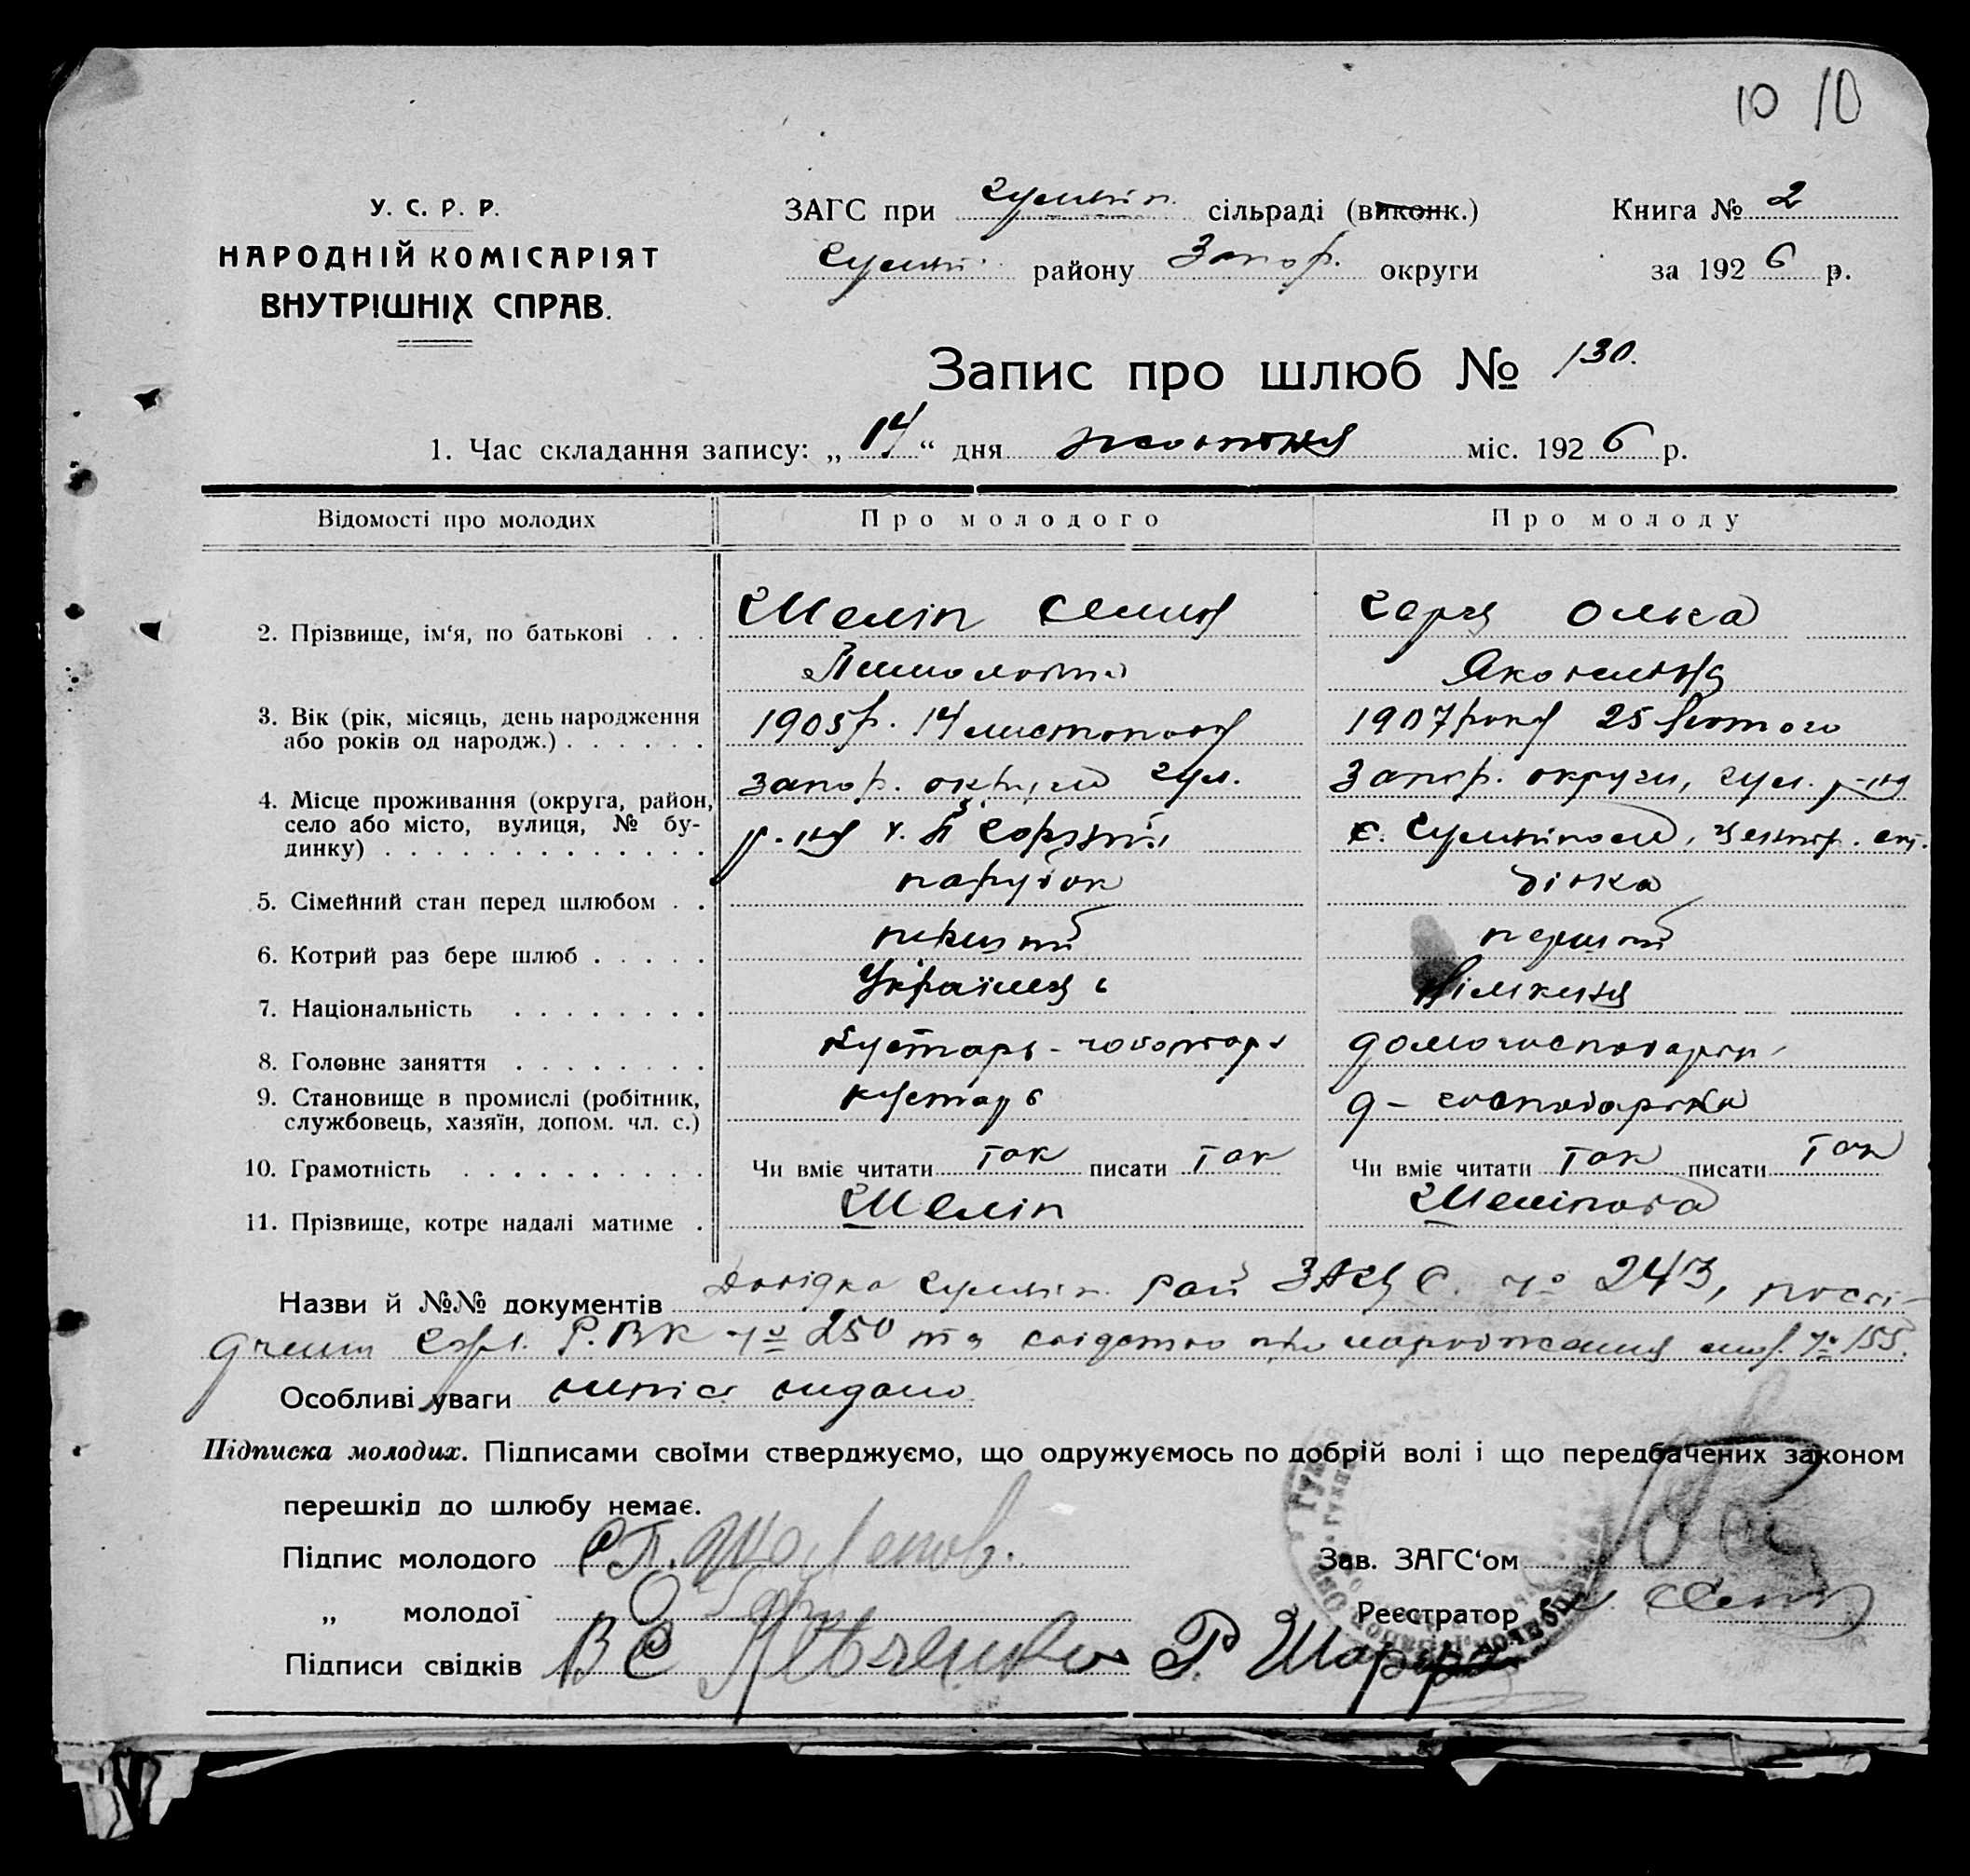 10 10
У. С. Р. Р.
НАРОДНІЙ КОМІСАРІЯТ
ВНУТРІШНІХ СПРАВ.
ЗАГС при Гуляйп. сільраді (виконк.)
Гуляй. району Запор. округи
Книга № 2
за 1926 р.
Запис про шлюб № 130.
1. Час складання запису: „14“ дня жовтня міс. 1926 р.
Відомості про молодих Про молодого Про молоду
2. Прізвище, ім‘я, по батькові . . . Шеліп Семен Герц Ольга
Яковлевна
3. Вік (рік, місяць, день народження 1905 р. 14 листопада 1907 року 25 Лютого
або років од народж.) . . . . . .
4. Місце проживання (округа, район, Запор. округи Гул. Запор. округи, Гул. р-ну
село або місто, вулиця, № бу- р-ну с. Гуляйполе,
динку) . . . . . . . . . . . . .
5. Сімейний стан перед шлюбом . . парубок дівка
6. Котрий раз бере шлюб . . . . . перший перший
7. Національність . . . . . . . . Українець Німкеня
8. Головне заняття . . . . . . . . Кустарь-чоботарь домогосподарка
9. Становище в промислі (робітник, кустарь д-господарка
службовець, хазяїн, допом. чл. с.)
10. Грамотність . . . . . . . . . . Чи вміє читати так писати так Чи вміє читати так писати так
11. Прізвище, котре надалі матиме . Шеліп Шеліпова
Назви й №№ документів Довідка Гуляйп. Рай ЗАГС. № 243, посві-
дчення Р.ВК № 250 та свідоцтво про народження № 155.
Особливі уваги видано
Підписка молодих. Підписами своїми стверджуємо, що одружуємось по добрій волі і що передбачених законом
перешкід до шлюбу немає.
Підпис молодого
„ молодої
Підписи свідків
Зав. ЗАГС‘ом
Реєстратор